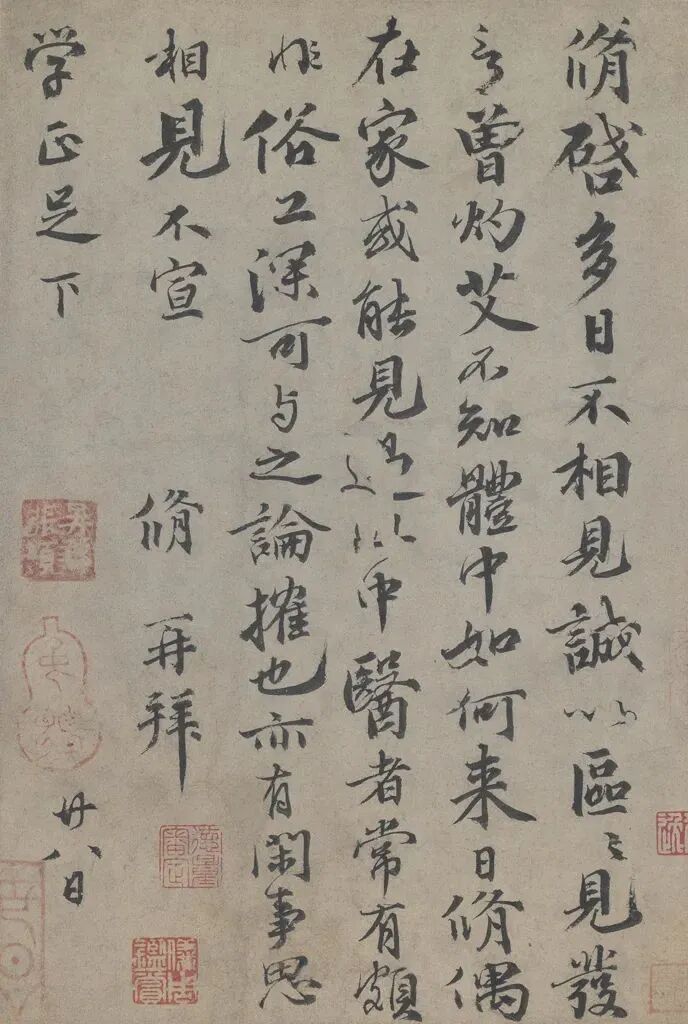 脩啓多日不相見誠以區々見發
言曾灼艾不知體中如何来日脩偶
在家或能見過此中醫者常有頗
非俗工深可与之論搉也亦有閑事思
相見不宣
脩再拜
学正足下
廿八日